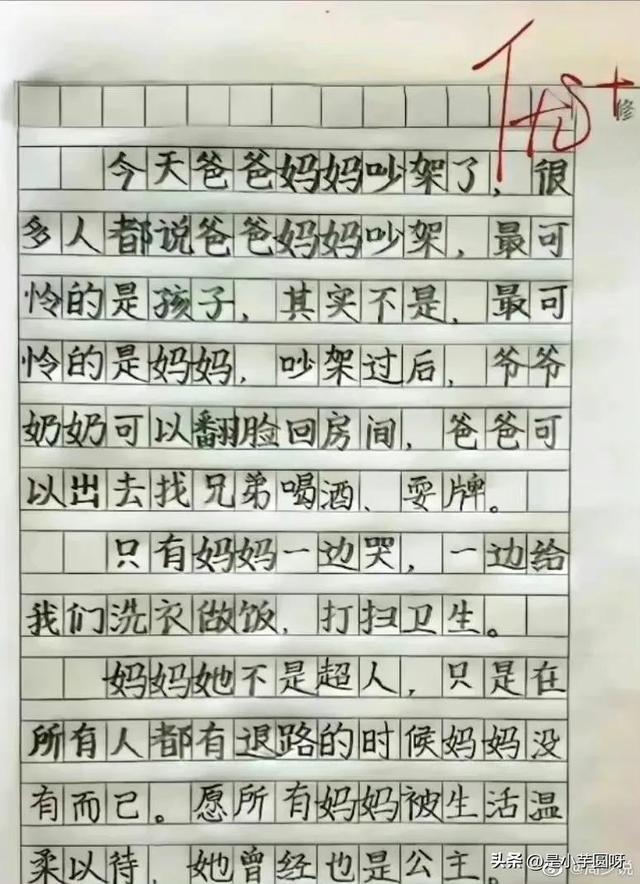 优+
修
今天爸爸妈妈吵架了，很
多人都说爸爸妈妈吵架，最可
怜的是孩子，其实不是，最可
怜的是妈妈，吵架过后，爷爷
奶奶可以翻脸回房间，爸爸可
以出去找兄弟喝酒、耍牌。
只有妈妈一边哭，一边给
我们洗衣做饭，打扫卫生。
妈妈她不是超人，只是在
所有人都有退路的时候妈妈没
有而已。愿所有妈妈被生活温
柔以待，她曾经也是公主。
头条 @是小芋圆呀